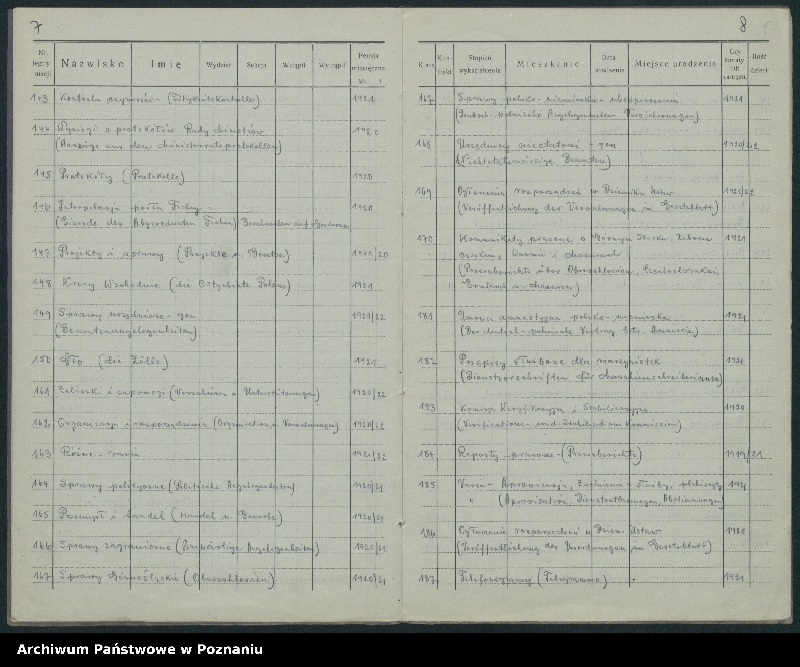 7
Nr. legitymacji Nazwisko Imię Wydział Sekcja Wstąpił Wystąpił Pensja miesięczna
143 Kontrola czynności - (Tätigkeitskontrolle) 1921
144 Wyciągi z protokołów Rady ministrów 1920
(Auszüge aus den Ministerratsprotokollen)
145 Protokóły (Protokolle) 1920
146 Interpelacja posła 1920
147 Projekty i ustawy (Projekte u. Gesetze) 1919/20
148 Kresy Wschodnie (die Ostgebiete Polens) 1921
149 Sprawy urzędnicze - gen 1921/22
(Beamtenangelegenheiten)
150 Cło (die Zölle) 1921
161 Zaliczki i zapomogi (Vorschüsse u. Unterstützungen) 1920/22
162 Organizacja i rozporządzenia (Organisation u. Verordnungen) 1920/22
163 Różne - varia 1921/22
164 Sprawy polityczne (Politische Angelegenheiten) 1920/21
165 Przemysł i handel (Handel u. Gewerbe) 1920/21
166 Sprawy zagraniczne (Auswärtige Angelegenheiten) 1920/21
167 Sprawy Górnośląskie (Oberschlesien) 1920/21
8
Klasa Stopień wykształcenia Mieszkanie Data urodzenia Miejsce urodzenia Czy żonaty lub zamężn. Ilość dzieci
167 Sprawy polsko - niemieckie - ubezpieczenia 1921
(Deutsch-polnische Angelegenheiten Versicherungen)
168 Urzędnicy nieetatowi - gen 1920/22
(Nichtetatsmässige Beamten)
169 Ogłoszenia rozporządzeń w Dzienniku Ustaw 1921/22
(Veröffentlichung der Verordnungen im Gesetzblatt)
170 Komunikaty prasowe o Górnym Śląsku, 1921
Warmii i Mazurach
(Presseberichte über Oberschlesien, Czechoslovakei,
Ermland u. Masuren)
181 Umowa amnestyjna polsko - niemiecka 1921
(Der deutsch - polnische Vertrag btr. Amnestie)
182 Przepisy służbowe dla maszynistek 1921
(Dienstvorschriften für Maschinenschreiberinnen)
183 Komisja Weryfikacyjna i Stabilizacyjna 1920
(Verifikations- und Stabilisations Kommission)
184 Raporty prasowe - (Presseberichte) 1919/21
185 Varia - Aprowizacja, Zwolnienia z służby, plebiscyty 1921
" (Aprovisation, Dienstentlassungen, Abstimmungen)
186 Ogłoszenie rozporządzeń w Dzien. Ustaw 1921
(Veröffentlichung der Verordnungen im Gesetzblatt)
187 Telefonogramy (Telegramme) 1921
Archiwum Państwowe w Poznaniu